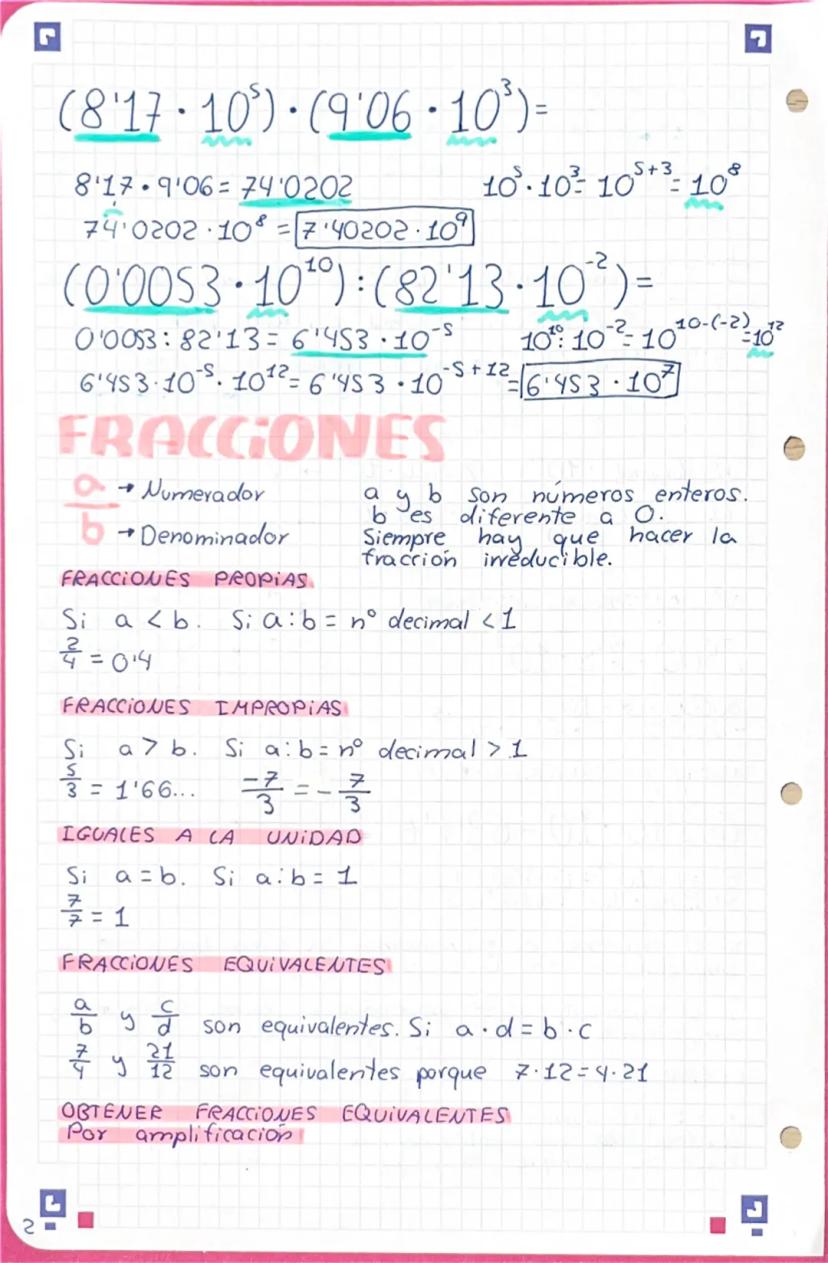 (8'17 · 10⁵) · (9'06 · 10³) =
8'17 · 9'06 = 74'0202    10⁵ · 10³ = 10⁵⁺³ = 10⁸
74'0202 · 10⁸ = 7'40202 · 10⁹
(0'0053 · 10¹⁰) : (82'13 · 10⁻²) =
0'0053 : 82'13 = 6'453 · 10⁻⁵    10¹⁰ : 10⁻² = 10¹⁰⁻⁽⁻²⁾ = 10¹²
6'453 · 10⁻⁵ · 10¹² = 6'453 · 10⁻⁵⁺¹² = 6'453 · 10⁷
FRACCIONES
a → Numerador    a y b son números enteros.
b es diferente a 0.
b → Denominador    Siempre hay que hacer la
fracción irreducible.
FRACCIONES PROPIAS
Si a < b. Si a : b = nº decimal < 1
2/4 = 0'4
FRACCIONES IMPROPIAS
Si a > b. Si a : b = nº decimal > 1
5/3 = 1'66...    -7/3 = - 7/3
IGUALES A LA UNIDAD
Si a = b. Si a : b = 1
7/7 = 1
FRACCIONES EQUIVALENTES
a/b y c/d son equivalentes. Si a · d = b · c
7/4 y 21/12 son equivalentes porque 7 · 12 = 4 · 21
OBTENER FRACCIONES EQUIVALENTES
Por amplificación
2